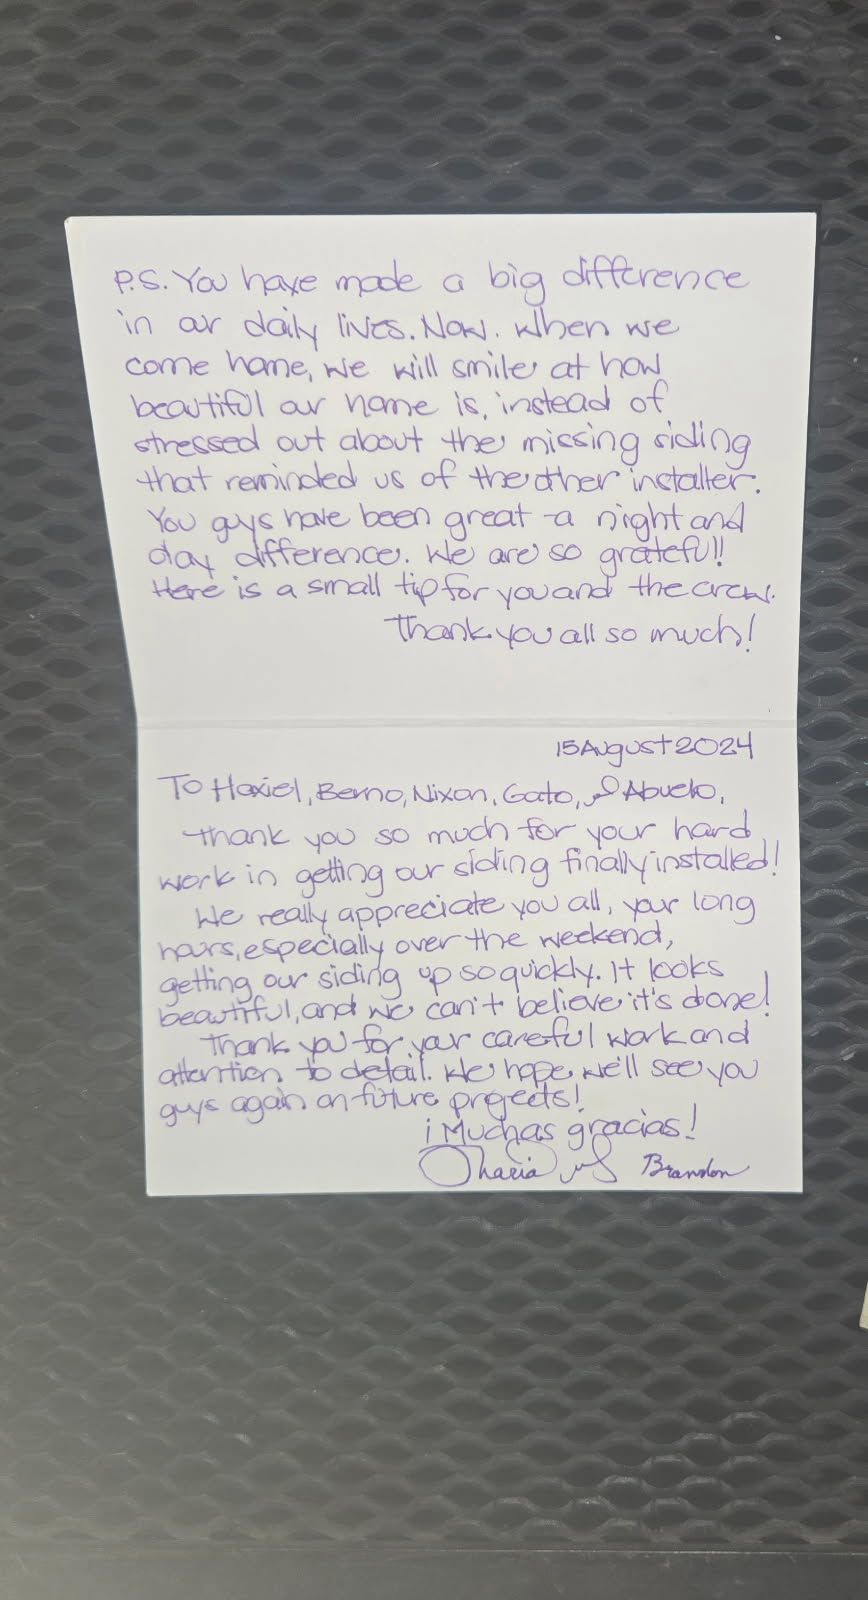 P.S. You have made a big difference
in our daily lives. Now. when we
come home, we will smile at how
beautiful our home is, instead of
stressed out about the missing siding
that reminded us of the other installer.
You guys have been great - a night and
day difference. We are so grateful!!
Here is a small tip for you and the crew.
Thank you all so much!
15 August 2024
To Haxiel, Berno, Nixon, Gato, & Abuelo,
Thank you so much for your hard
work in getting our siding finally installed!
We really appreciate you all, your long
hours, especially over the weekend,
getting our siding up so quickly. It looks
beautiful, and we can't believe it's done!
Thank you for your careful work and
attention to detail. We hope we'll see you
guys again on future projects!
¡Muchas gracias!
& Brandon